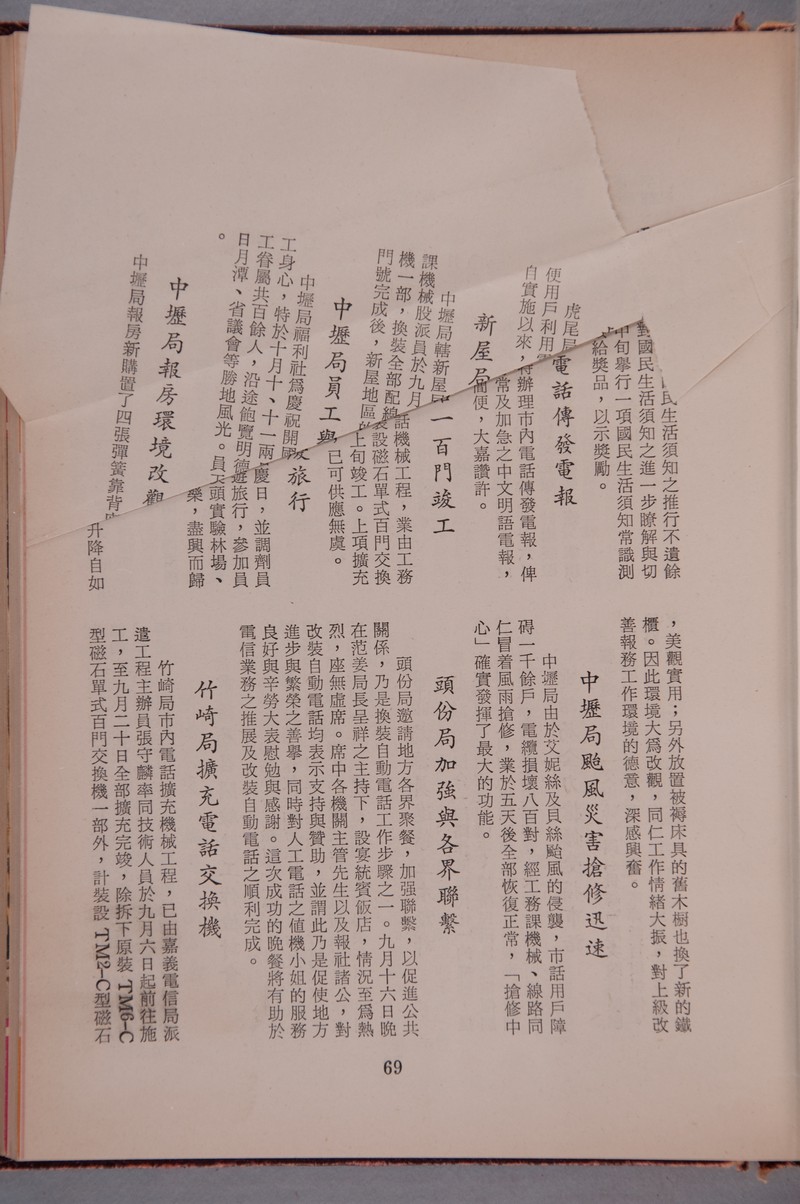 民生活須知之推行不遺餘
國民生活須知之進一步瞭解與切
中旬舉行一項國民生活須知常識測
給獎品，以示獎勵。
虎尾局
電話傳發電報
便用戶利用
特辦理市內電話傳發電報，俾
自實施以來，
常及加急之中文明語電報，
而便，大嘉讚許。
新屋局
一百門竣工
中壢局轄新屋
話機械工程，業由工務
課機械股派員於九月
裝設磁石單式百門交換
機一部，換裝全部配線
上旬竣工。上項擴充
門號完成後，新屋地區
已可供應無虞。
中壢局員工與
旅行
中壢局福利社爲慶祝開國
慶日，並調劑員
工身心，特於十月十、十一兩
遊旅行，參加員
工眷屬共百餘人，沿途飽覽明德
天頭實驗林場、
日月潭、省議會等勝地風光。員
樂，盡興而歸
。
中壢局報房環境改觀
中壢局報房新購置了四張彈簧靠背
升降自如
，美觀實用；另外放置被褥床具的舊木櫥也換了新的鐵
櫃。因此環境大爲改觀，同仁工作情緒大振，對上級改
善報務工作環境的德意，深感興奮。
中壢局颱風災害搶修迅速
中壢局由於艾妮絲及貝絲颱風的侵襲，市話用戶障
碍一千餘戶，電纜損壞八百對，經工務課機械、線路同
仁冒着風雨搶修，業於五天後全部恢復正常，「搶修中
心」確實發揮了最大的功能。
頭份局加強與各界聯繫
頭份局邀請地方各界聚餐，加强聯繫，以促進公共
關係，乃是換裝自動電話工作步驟之一。九月十六日晚
在范姜局長呈祥之主持下，設宴統賓飯店，情況至爲熱
烈，座無虛席。席中各機關主管先生以及報社諸公，對
改裝自動電話均表示支持與贊助，並謂此乃是促使地方
進步與繁榮之善擧，同時對人工電話之値機小姐的服務
良好與辛勞大表慰勉與感謝。這次成功的晚餐將有助於
電信業務之推展及改裝自動電話之順利完成。
竹崎局擴充電話交換機
竹崎局市內電話擴充機械工程，已由嘉義電信局派
遣工程主辦員張守麟率同技術人員於九月六日起前往施
工，至九月二十日全部擴充完竣，除拆下原裝 TM6-C
型磁石單式百門交換機一部外，計裝設 TM2-C型磁石
69